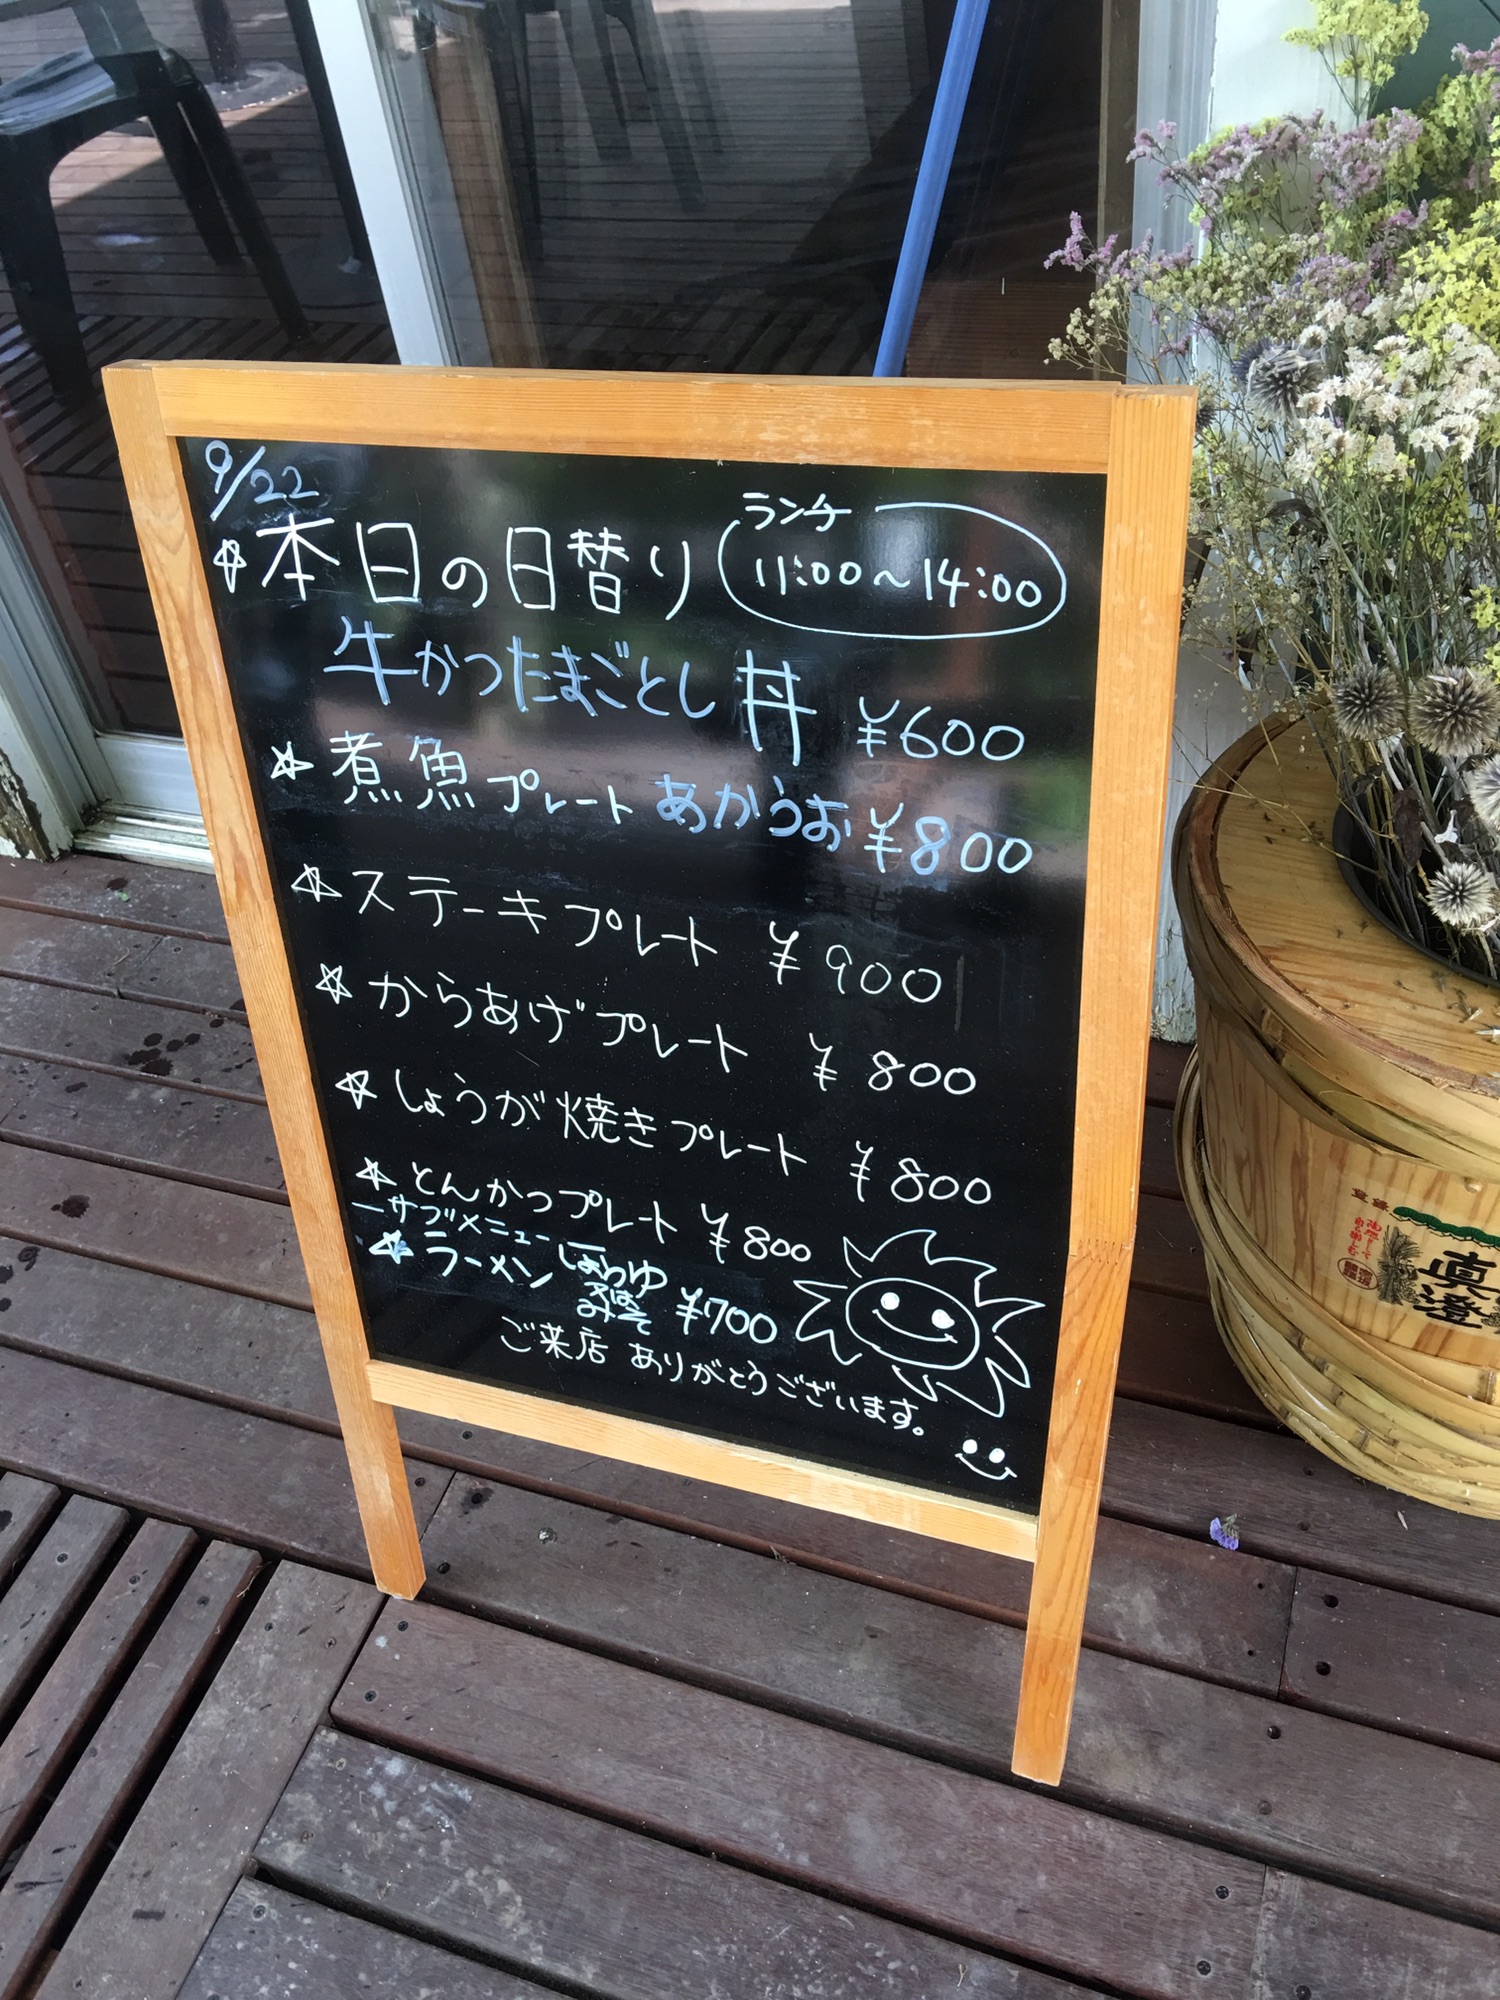 9/22
☆本日の日替り
ランチ
11:00〜14:00
牛かつたまごとし丼 ¥600
☆煮魚プレート あかうお ¥800
☆ステーキプレート ¥900
☆からあげプレート ¥800
☆しょうが焼きプレート ¥800
☆とんかつプレート ¥800
ーサブメニューー
☆ラーメン しょうゆ みそ ¥700
ご来店 ありがとうございます。
登録
真澄